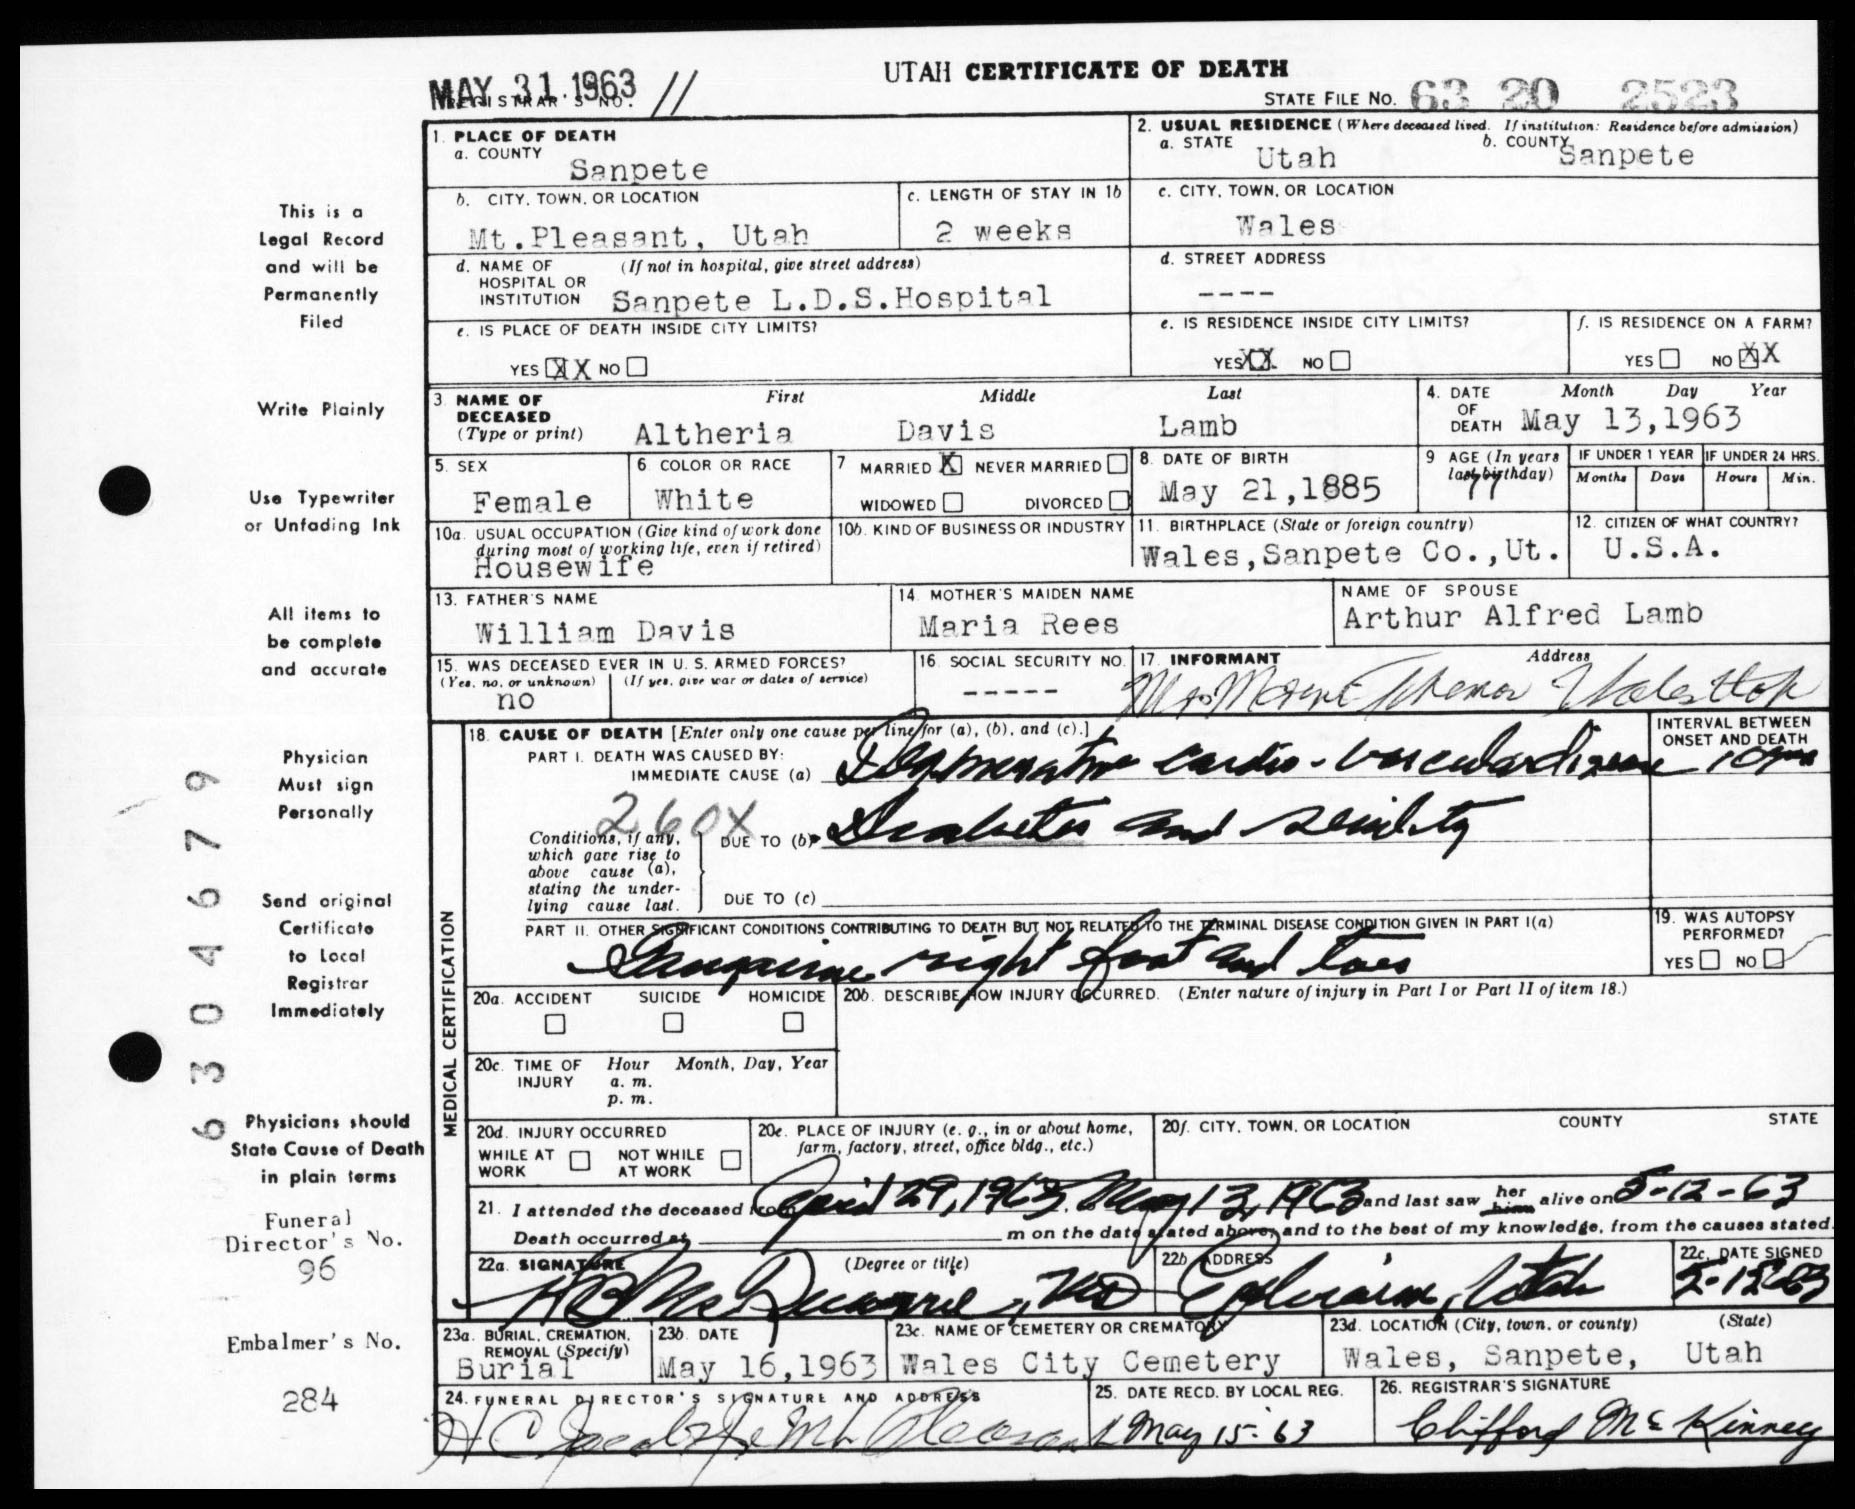 UTAH CERTIFICATE OF DEATH
MAY 31 1963
REGISTRAR'S NO. 11
STATE FILE NO. 63 20 2523
1. PLACE OF DEATH
a. COUNTY
Sanpete
2. USUAL RESIDENCE (Where deceased lived. If institution: Residence before admission)
a. STATE Utah b. COUNTY Sanpete
b. CITY, TOWN, OR LOCATION
Mt.Pleasant, Utah
c. LENGTH OF STAY IN 1b
2 weeks
c. CITY, TOWN, OR LOCATION
Wales
d. NAME OF HOSPITAL OR INSTITUTION (If not in hospital, give street address)
Sanpete L.D.S.Hospital
d. STREET ADDRESS
----
e. IS PLACE OF DEATH INSIDE CITY LIMITS?
YES XX NO
e. IS RESIDENCE INSIDE CITY LIMITS?
YES XX NO
f. IS RESIDENCE ON A FARM?
YES NO XX
3. NAME OF DECEASED (Type or print)
First Middle Last
Altheria Davis Lamb
4. DATE OF DEATH Month Day Year
May 13,1963
5. SEX
Female
6. COLOR OR RACE
White
7 MARRIED X NEVER MARRIED
WIDOWED DIVORCED
8. DATE OF BIRTH
May 21,1885
9 AGE (In years last birthday)
77
IF UNDER 1 YEAR
Months Days
IF UNDER 24 HRS.
Hours Min.
10a. USUAL OCCUPATION (Give kind of work done during most of working life, even if retired)
Housewife
10b. KIND OF BUSINESS OR INDUSTRY
11. BIRTHPLACE (State or foreign country)
Wales,Sanpete Co.,Ut.
12. CITIZEN OF WHAT COUNTRY?
U.S.A.
13. FATHER'S NAME
William Davis
14. MOTHER'S MAIDEN NAME
Maria Rees
NAME OF SPOUSE
Arthur Alfred Lamb
15. WAS DECEASED EVER IN U. S. ARMED FORCES?
(Yes, no, or unknown) (If yes, give war or dates of service)
no
16. SOCIAL SECURITY NO.
-----
17. INFORMANT Address
Mrs
MEDICAL CERTIFICATION
18. CAUSE OF DEATH [Enter only one cause per line for (a), (b), and (c).]
PART I. DEATH WAS CAUSED BY:
IMMEDIATE CAUSE (a) Degenerative cardio-vascular disease
INTERVAL BETWEEN ONSET AND DEATH
10 yrs
260X
Conditions, if any, which gave rise to above cause (a), stating the underlying cause last.
DUE TO (b) Diabetes and senility
DUE TO (c)
PART II. OTHER SIGNIFICANT CONDITIONS CONTRIBUTING TO DEATH BUT NOT RELATED TO THE TERMINAL DISEASE CONDITION GIVEN IN PART I(a)
Gangrene right foot and toes
19. WAS AUTOPSY PERFORMED?
YES NO
20a. ACCIDENT SUICIDE HOMICIDE
20b. DESCRIBE HOW INJURY OCCURRED. (Enter nature of injury in Part I or Part II of item 18.)
20c. TIME OF INJURY Hour Month, Day, Year
a. m.
p. m.
20d. INJURY OCCURRED
WHILE AT WORK NOT WHILE AT WORK
20e. PLACE OF INJURY (e. g., in or about home, farm, factory, street, office bldg., etc.)
20f. CITY, TOWN, OR LOCATION COUNTY STATE
21. I attended the deceased from April 29, 1963, May 13, 1963 and last saw her him alive on 5-12-63
Death occurred at m on the date stated above, and to the best of my knowledge, from the causes stated.
22a. SIGNATURE (Degree or title)
MD
22b ADDRESS
Ephraim, Utah
22c. DATE SIGNED
23a. BURIAL, CREMATION, REMOVAL (Specify)
Burial
23b. DATE
May 16,1963
23c. NAME OF CEMETERY OR CREMATORY
Wales City Cemetery
23d. LOCATION (City, town, or county) (State)
Wales, Sanpete, Utah
24. FUNERAL DIRECTOR'S SIGNATURE AND ADDRESS
H C Mt. Pleasant
25. DATE RECD. BY LOCAL REG.
May 15-'63
26. REGISTRAR'S SIGNATURE
Clifford McKinney
This is a
Legal Record
and will be
Permanently
Filed
Write Plainly
Use Typewriter
or Unfading Ink
All items to
be complete
and accurate
Physician
Must sign
Personally
Send original
Certificate
to Local
Registrar
Immediately
Physicians should
State Cause of Death
in plain terms
Funeral
Director's No.
96
Embalmer's No.
284
6304679